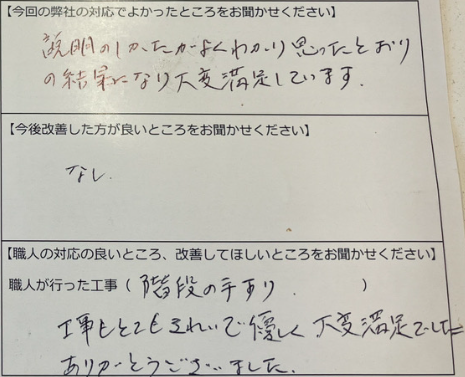 【今回の弊社の対応でよかったところをお聞かせください】
説明のしかたがよくわかり思ったとおり
の結果になり大変満足しています.
【今後改善した方が良いところをお聞かせください】
なし.
【職人の対応の良いところ、改善してほしいところをお聞かせください】
職人が行った工事（階段の手すり）
工事もとてもきれいで優しく大変満足でした
ありがとうございました.